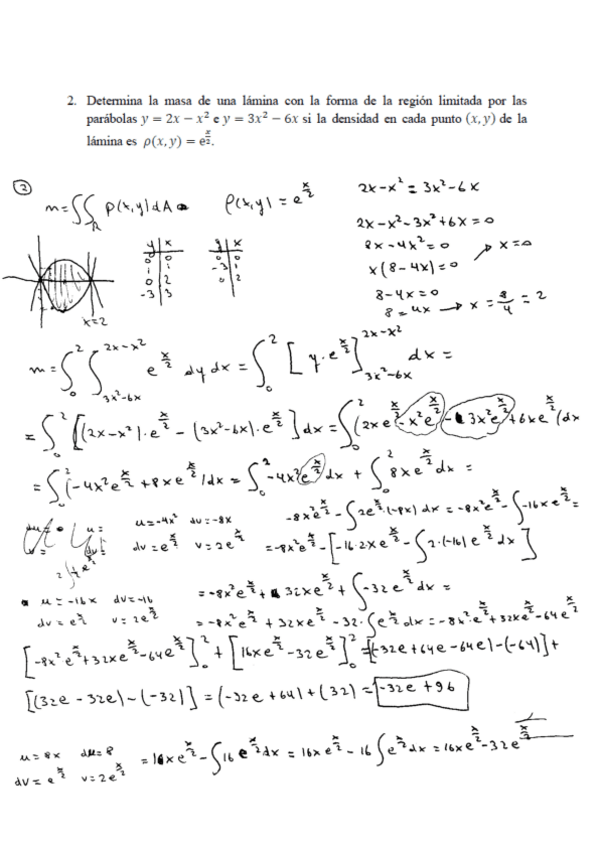 2. Determina la masa de una lámina con la forma de la región limitada por las
parábolas y = 2x − x² e y = 3x² − 6x si la densidad en cada punto (x, y) de la
lámina es ρ(x, y) = e^(x/2).
② m = ∬_R ρ(x,y) dA ρ(x,y) = e^(x/2) 2x-x² = 3x²-6x
2x-x²-3x²+6x=0
8x-4x²=0 → x=0
x(8-4x)=0
8-4x=0
8=4x → x = 8/4 = 2
y | x
0 | 0
1 | 1
0 | 2
-3 | 3
y | x
0 | 0
-3 | 1
0 | 2
x=2
m = ∫₀² ∫_(3x²-6x)^(2x-x²) e^(x/2) dy dx = ∫₀² [y·e^(x/2)]_(3x²-6x)^(2x-x²) dx =
= ∫₀² [(2x-x²)·e^(x/2) - (3x²-6x)·e^(x/2)] dx = ∫₀² (2xe^(x/2) - x²e^(x/2) - 3x²e^(x/2) + 6xe^(x/2)) dx
= ∫₀² (-4x²e^(x/2) + 8xe^(x/2)) dx = ∫₀² -4x²e^(x/2) dx + ∫₀² 8xe^(x/2) dx =
u = -4x² dv = -8x
dv = e^(x/2) v = 2e^(x/2)
-8x²e^(x/2) - ∫2e^(x/2)·(-8x) dx = -8x²e^(x/2) - ∫-16xe^(x/2) =
= -8x²e^(x/2) - [-16·2xe^(x/2) - ∫2·(-16)e^(x/2) dx]
u = -16x dv = -16
dv = e^(x/2) v = 2e^(x/2)
= -8x²e^(x/2) + 32xe^(x/2) + ∫-32e^(x/2) dx =
= -8x²e^(x/2) + 32xe^(x/2) - 32·∫e^(x/2) dx = -8x²·e^(x/2) + 32xe^(x/2) - 64e^(x/2)
[-8x²e^(x/2) + 32xe^(x/2) - 64e^(x/2)]₀² + [16xe^(x/2) - 32e^(x/2)]₀² = [(-32e + 64e - 64e) - (-64)] +
[(32e - 32e) - (-32)] = (-32e + 64) + (32) = -32e + 96
u = 8x du = 8
dv = e^(x/2) v = 2e^(x/2)
= 16xe^(x/2) - ∫16e^(x/2) dx = 16xe^(x/2) - 16∫e^(x/2) dx = 16xe^(x/2) - 32e^(x/2)